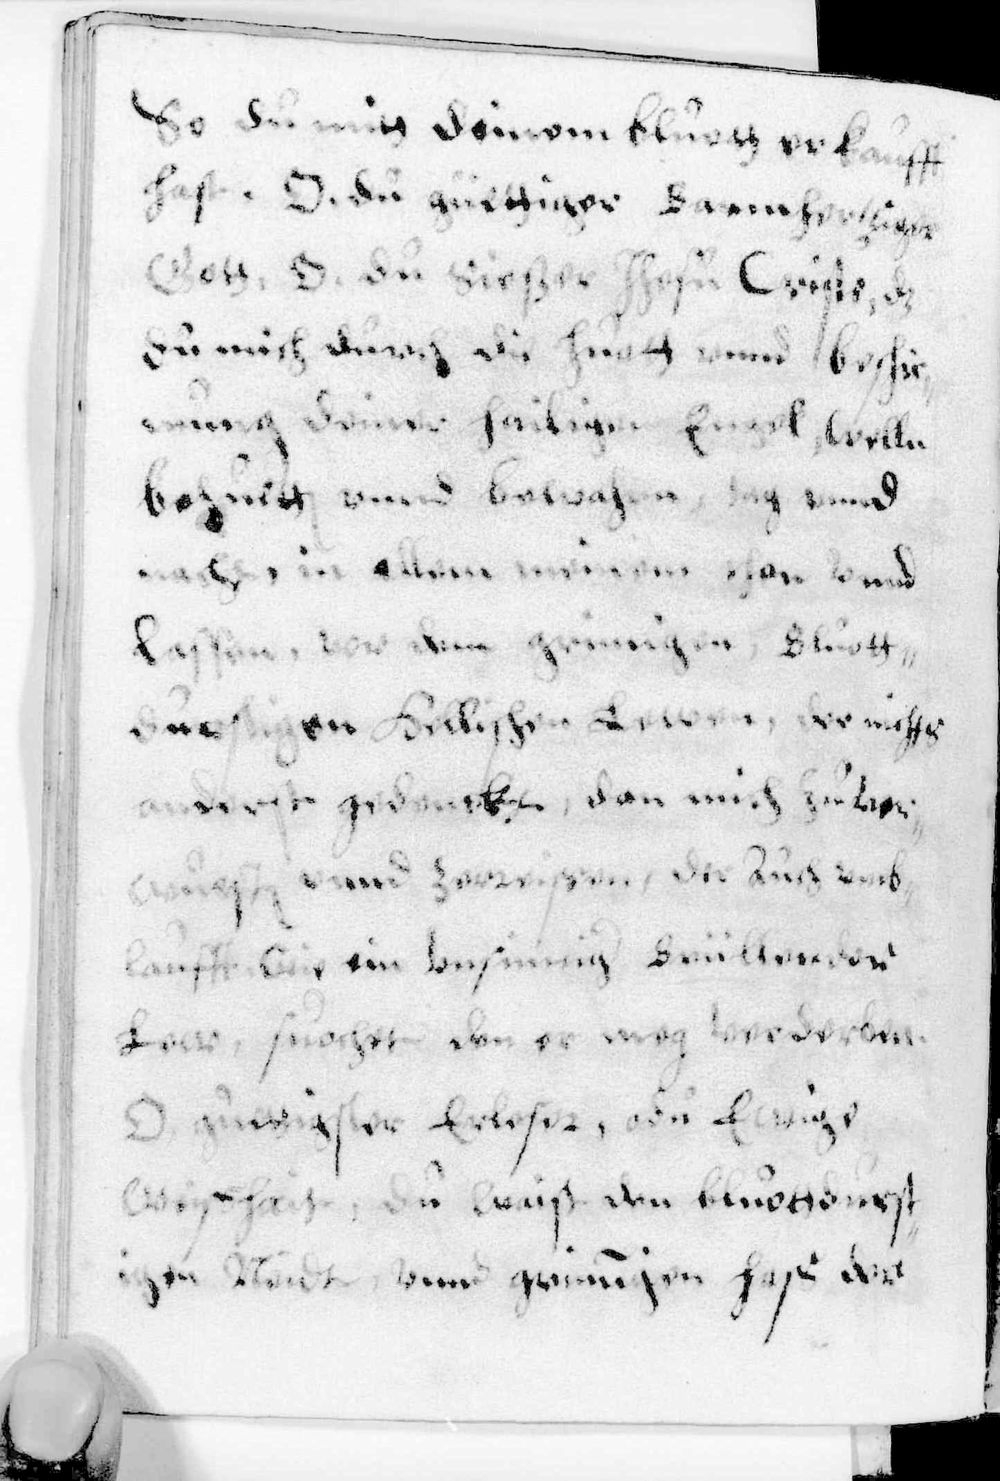 So du mitt deinem bluott erkaufft
hast. O. du güettiger Barmhertziger
Gott, O. du süeßer Jhesu Criste, dz
du mich durch die huott vnnd beschir,,
mung deiner heiligen Engel, wellest
behüett vnnd bewahren, tag vnnd
nacht, in allem meinem thon vnnd
Lassen, vor dem grimigen, Bluott,,
durstigen Hellischen Lewen, der nichts
anderst gedenckt, dan mich zuver,,
wüest vnnd zerreissen, der Auch vmb,,
laufft, Wie ein vnsinnig Brüllender
Lew, suochet den er mög verderben.
O güettigster Erloser, o du Ewige
Weyßhait, du waist den bluottdurst,,
igen Neidt, vnnd grimigen haß der